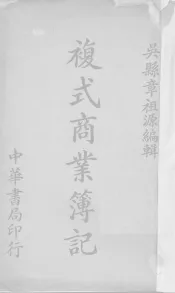 吳縣章祖源編輯
複式商業簿記
中華書局印行